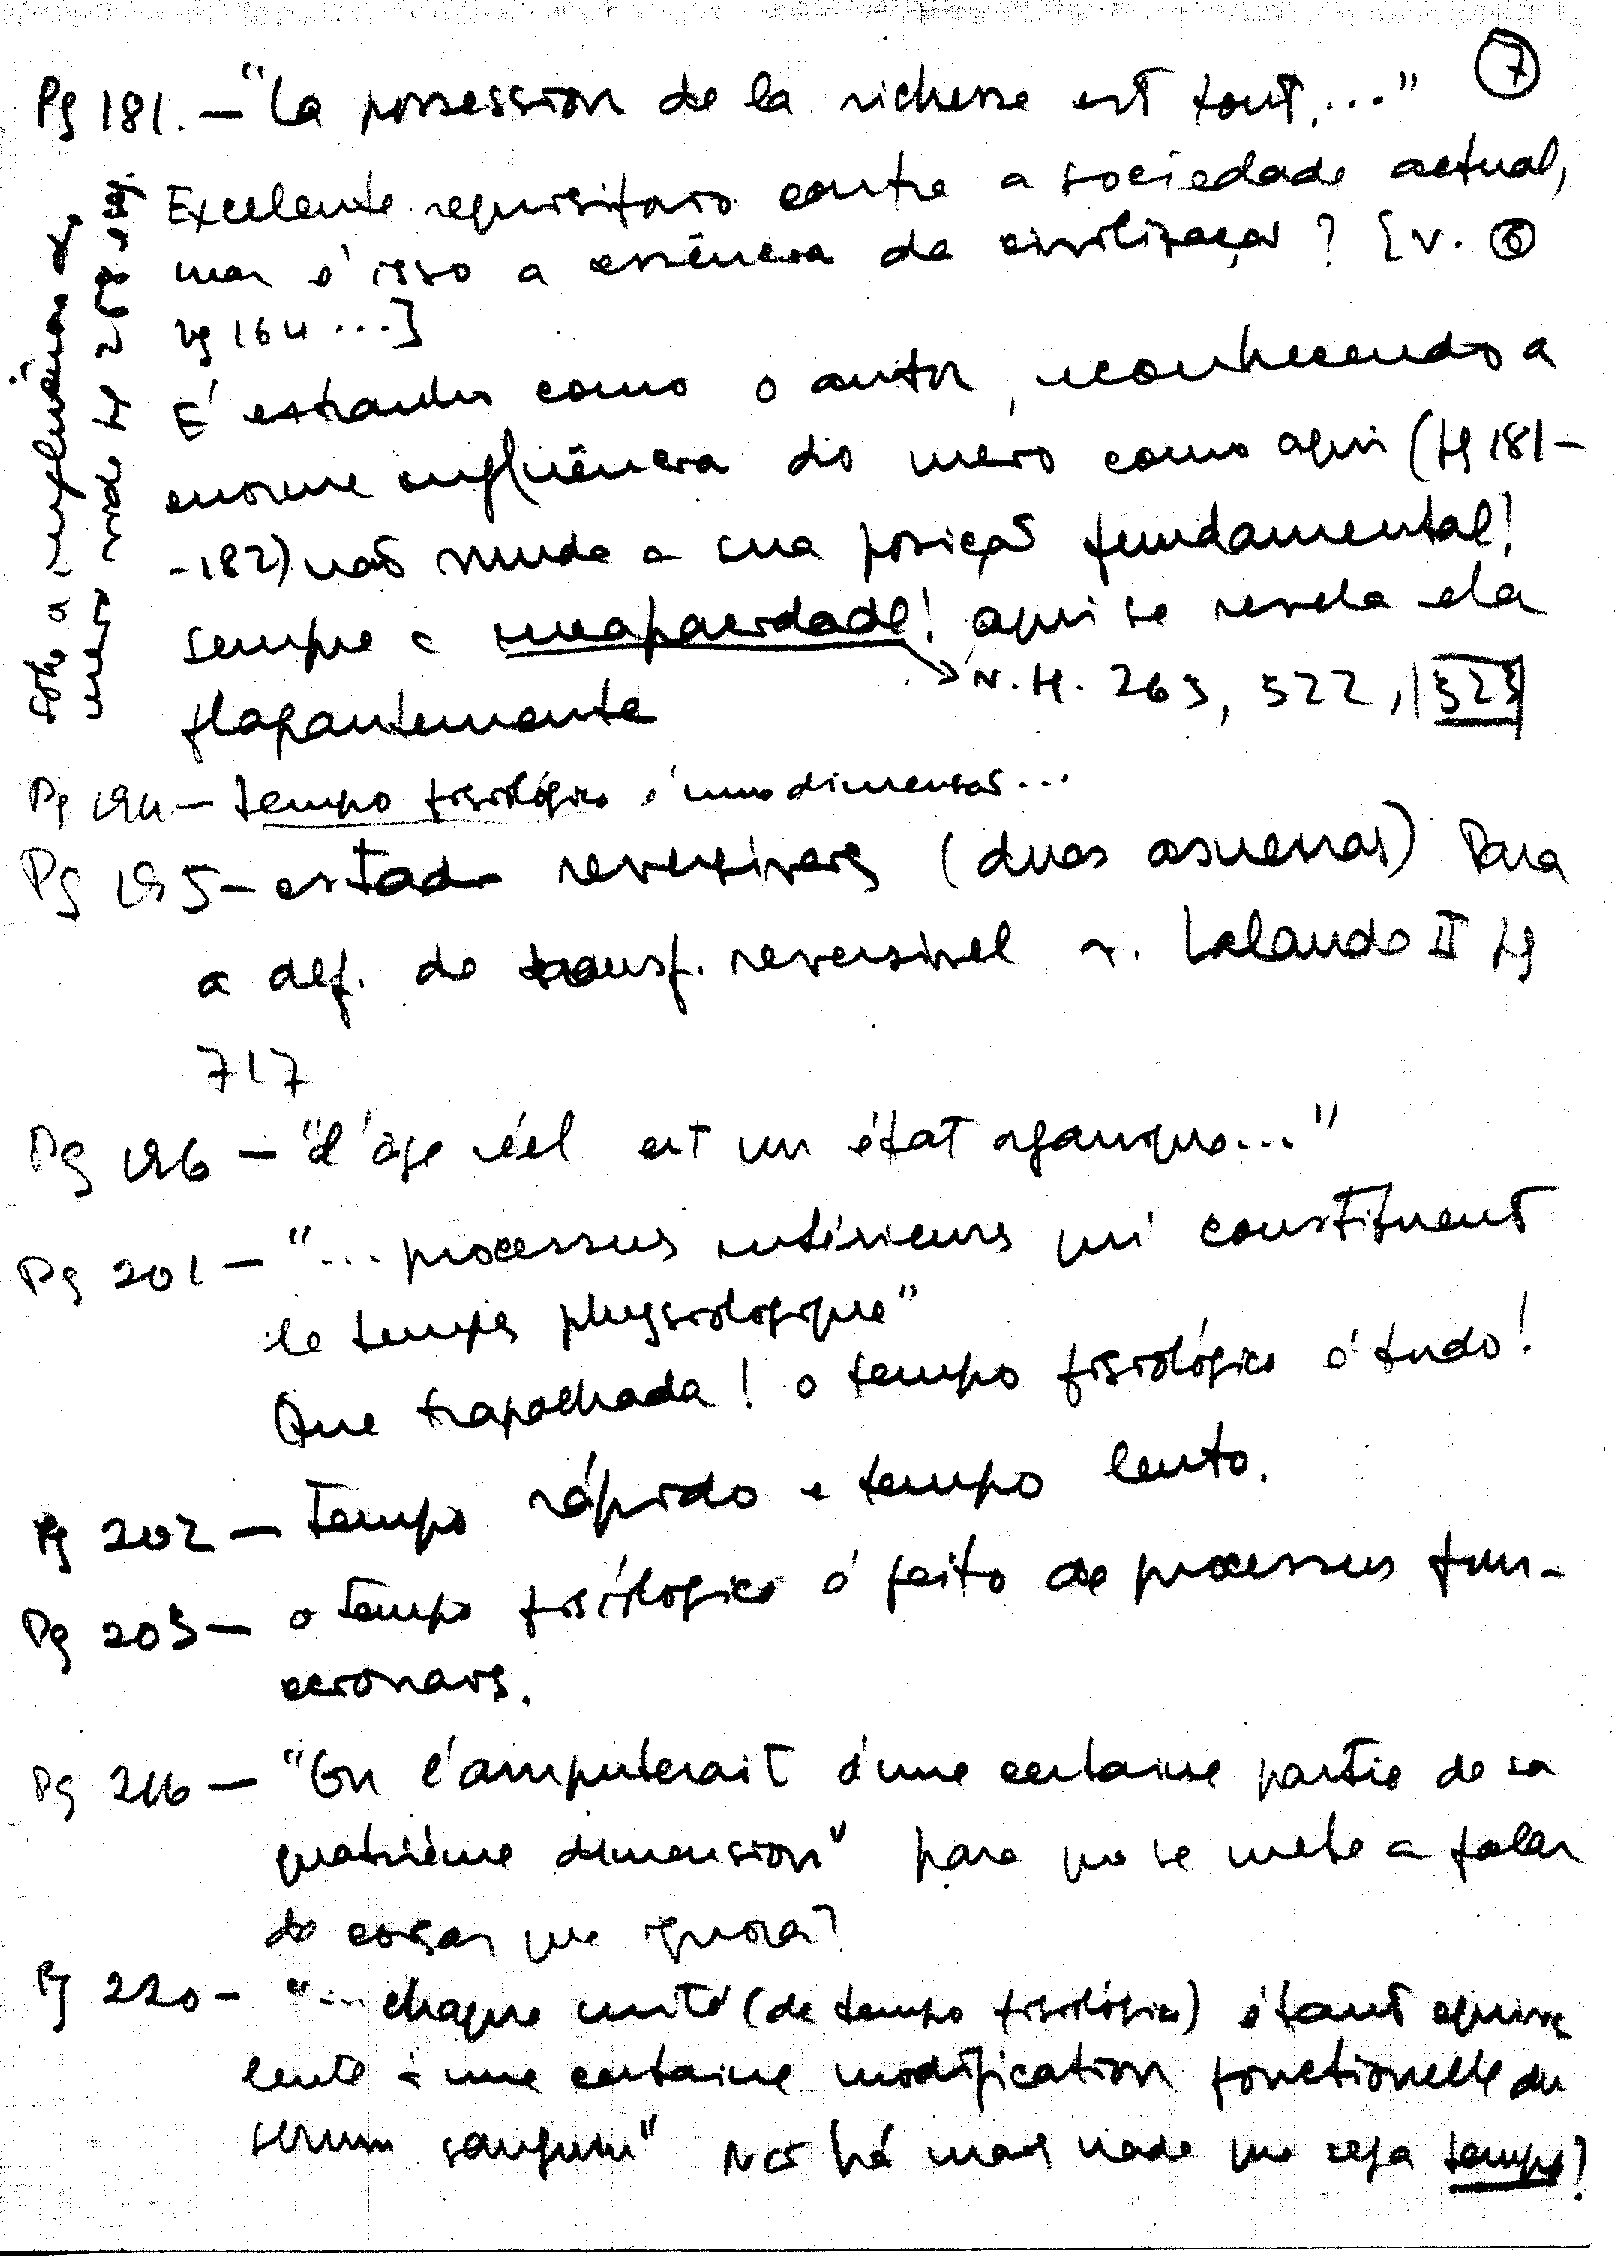 7
Pg 181. — "La possession de la richesse est tout, ..."
Excelente requisitório contra a sociedade actual,
mas é isso a essência da civilização? [v. 6
pg 164 ...]
É estranho como o autor, reconhecendo a
enorme influência do meio como aqui (pg 181-
-182) não mude a sua posição fundamental!
sempre a incapacidade! aqui se revela ela
flagrantemente
v. pg. 263, 322, 323
Sobre a influência do
meio
Pg 194 — tempo fisiológico é uma dimensão...
Pg 195 — estados reversíveis (duas asneiras) Para
a def. de transf. reversível v. Lalande II pg
717
Pg 196 — "L'âge réel est un état organique..."
Pg 201 — "... processus intérieurs qui constituent
le temps physiologique"
Que trapalhada! o tempo fisiológico é tudo!
Pg 202 — Tempo rápido e tempo lento.
Pg 203 — o tempo fisiológico é feito de processus fun-
cionais.
Pg 216 — "On l'amputerait d'une certaine partie de sa
quatrième dimension" para que se mete a falar
de coisas que ignora?
Pg 220 — "... chaque unité (de tempo fisiológico) étant équiva
lente à une certaine modification fonctionelle du
sérum sanguin" Não há mais nada que seja tempo?